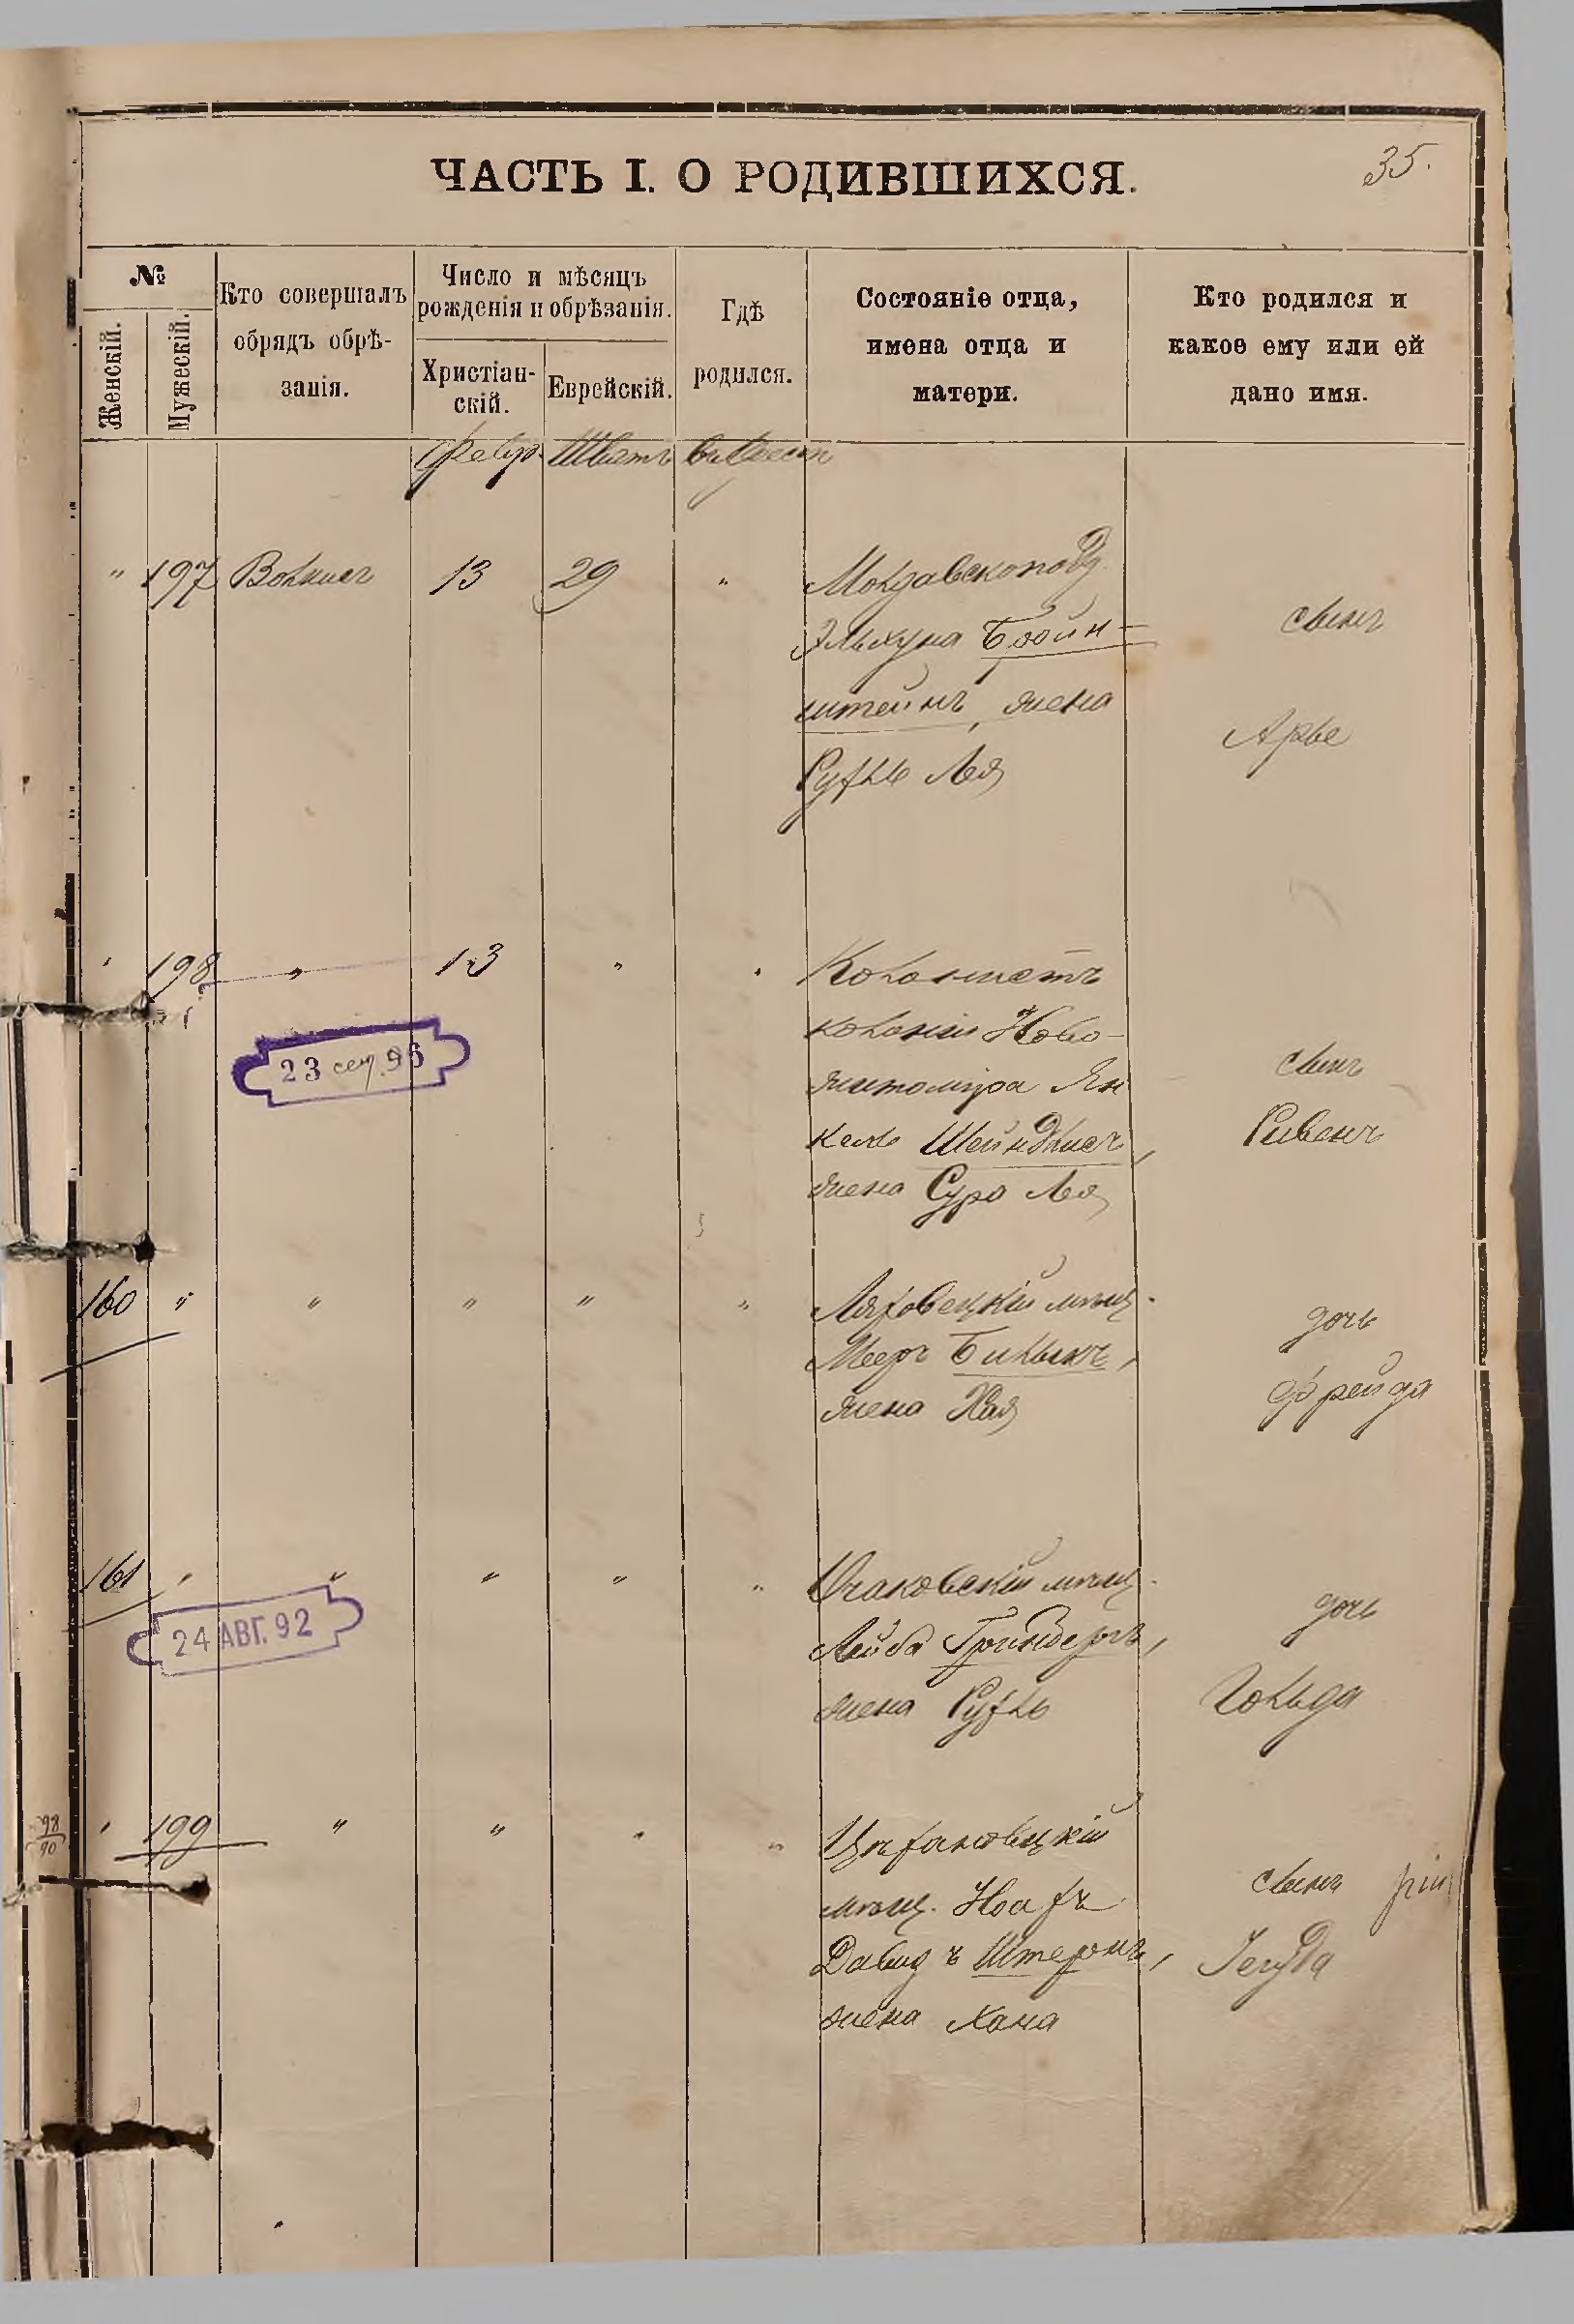 ЧАСТЬ I. О РОДИВШИХСЯ.
35.
№
Женскій.
Мужескій.
Кто совершалъ
обрядъ обрѣ-
занія.
Число и мѣсяцъ
рожденія и обрѣзанія.
Христіан-
скій.
Еврейскій.
Гдѣ
родился.
Состояніе отца,
имена отца и
матери.
Кто родился и
какое ему или ей
дано имя.
Февр. Шватъ
" 197 13 29 "
Эльхуна Бройн-
штейнъ, жена
Рухль Лея
сынъ
Арье
" 198 " 13 " "
23 сен. 96
Колонистъ
колоніи Ново-
житомира Ян
кель Шейндлисъ,
жена Сура Лея
сынъ
Ривенъ
160 " " " " "
Ляховецкій мѣщ.
Мееръ Билыкъ,
жена Хая
дочь
Фрейда
161 " " " " "
24 АВГ. 92
Очаковскій мѣщ.
Лейба Гринбергъ,
жена Рухль
дочь
Гольда
98
90
" 199 " " " "
Цѣхановецкій
мѣщ. Ноахъ
Давидъ Штернъ,
жена Хана
сынъ
Іегуда